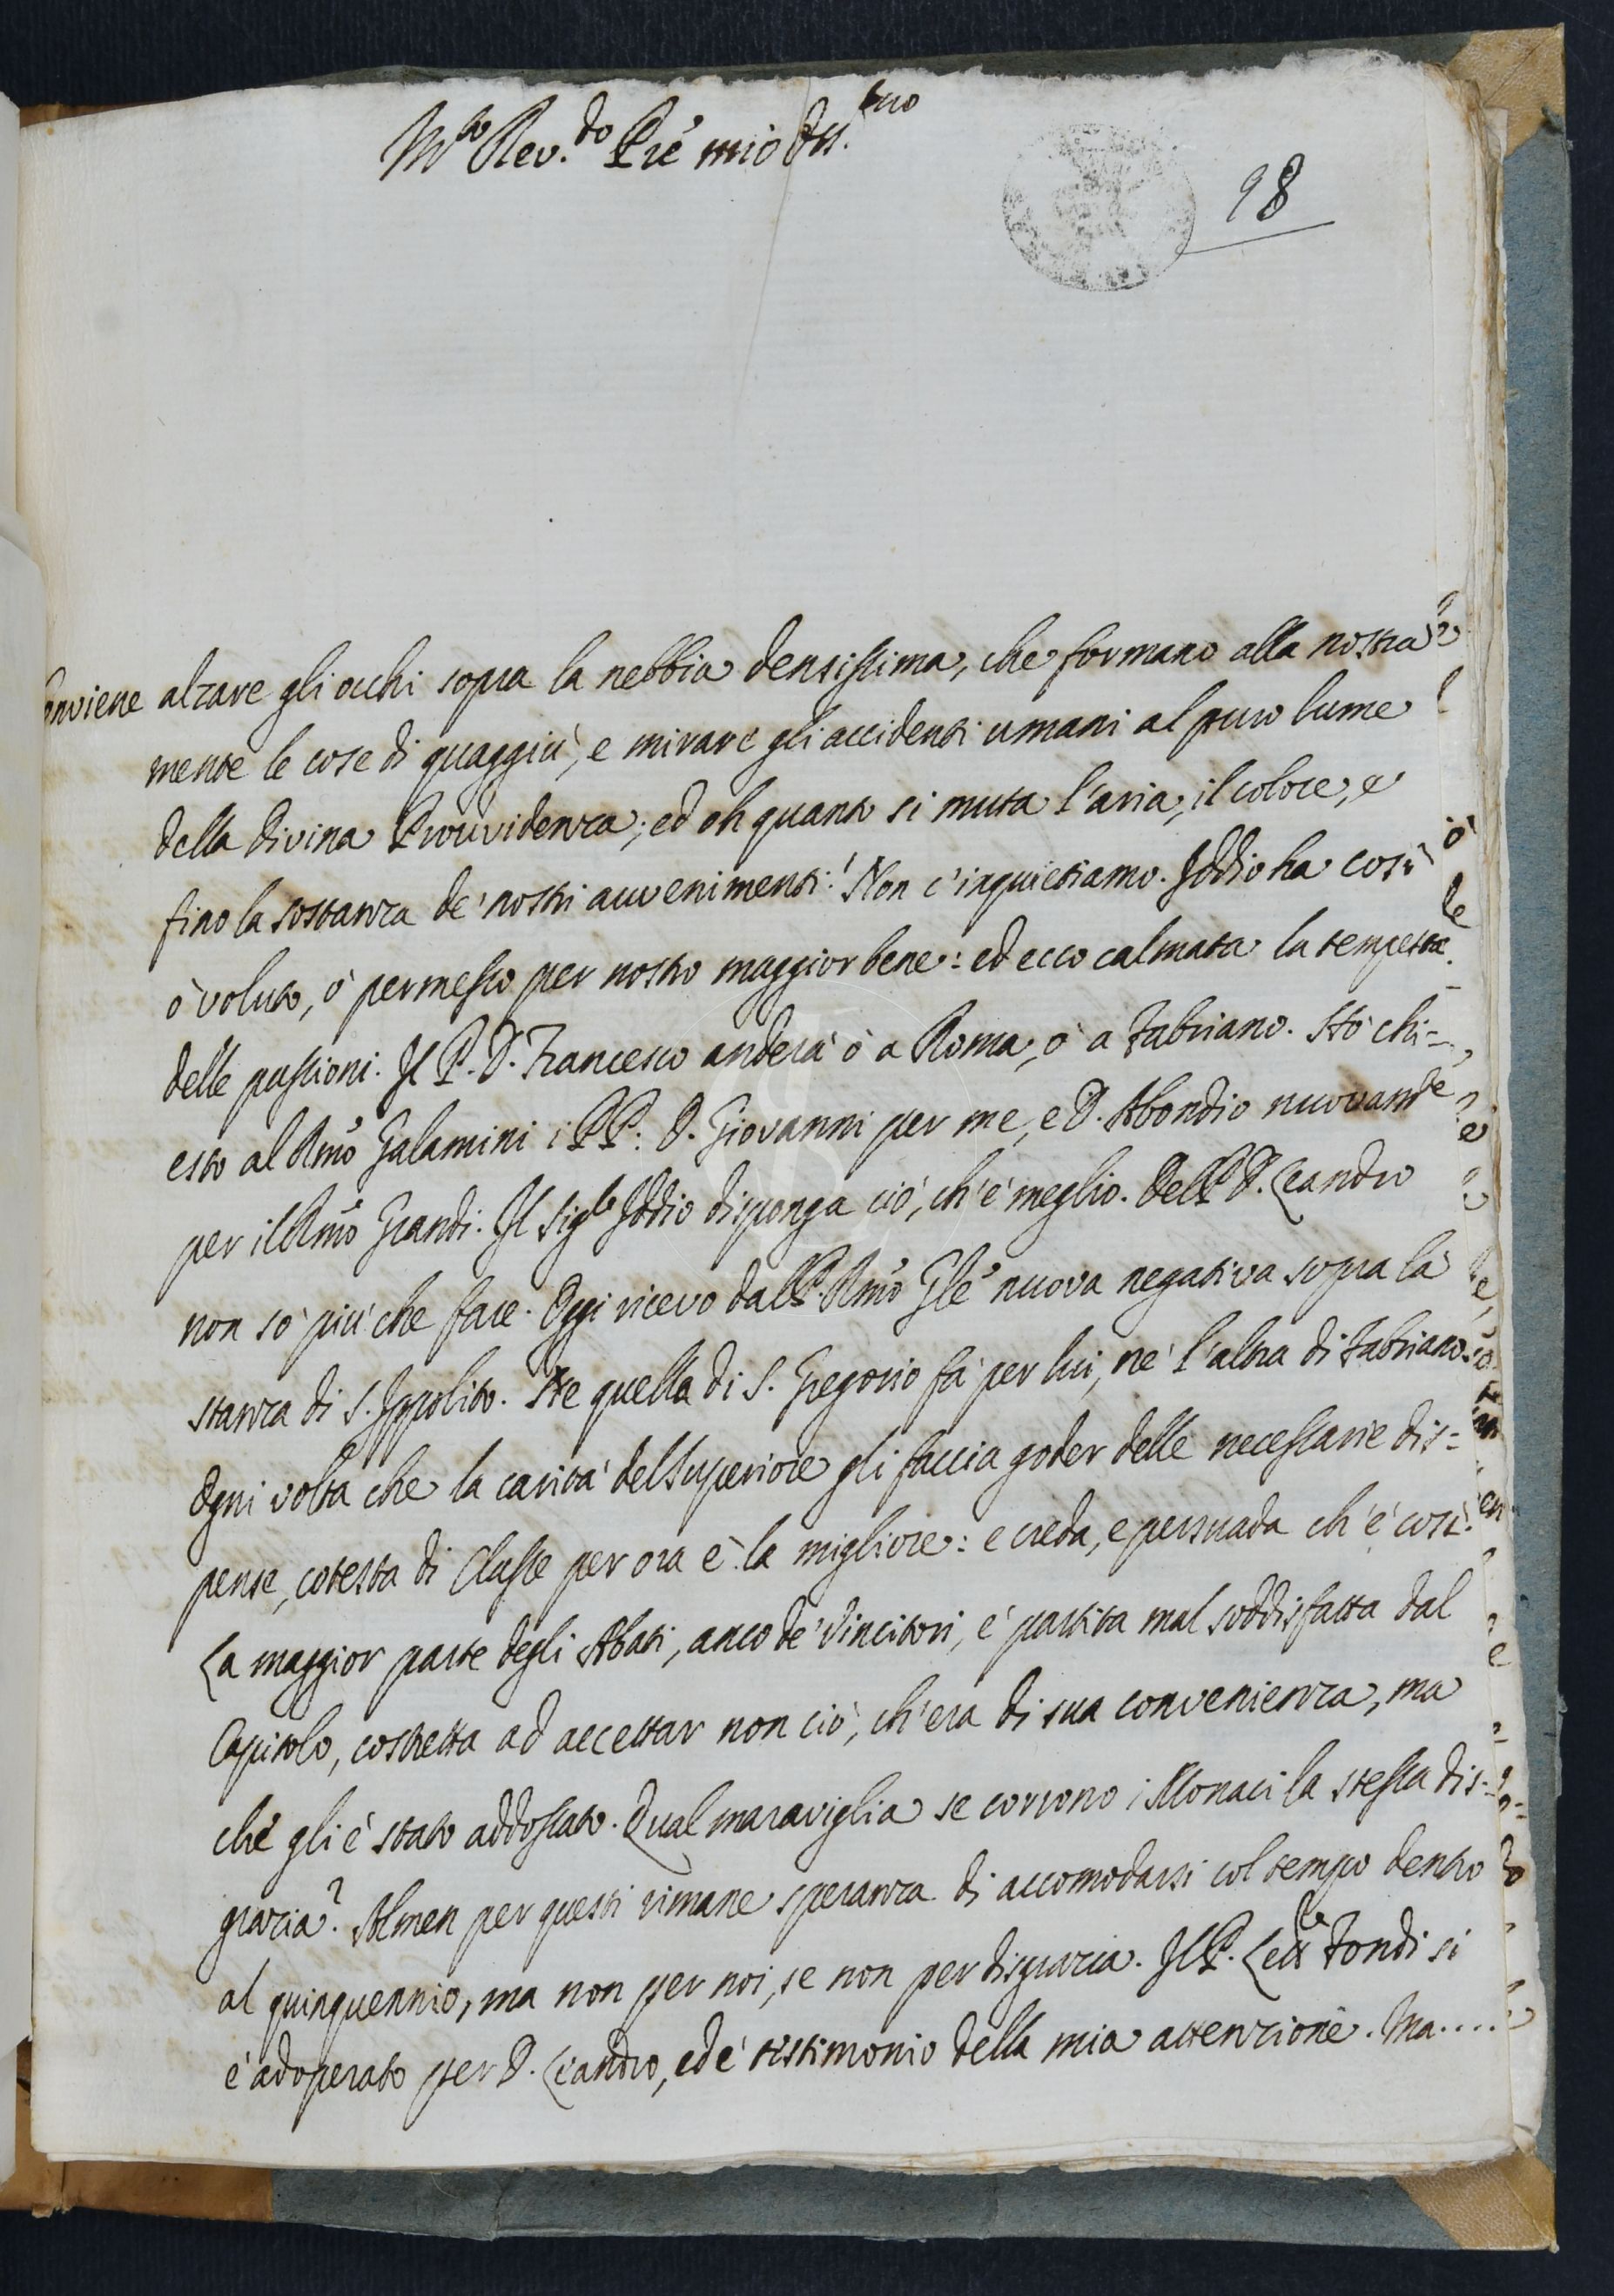 M.to Rev.do Pre mio Oss.mo
98
Conviene alzare gli occhi sopra la nebbia densissima, che formano alla nostra
mente le cose di quaggiù, e mirare gli accidenti umani al puro lume
della divina Provvidenza; ed oh quanto si muta l'aria, il colore, e
fino la sostanza de' nostri avvenimenti! Non c'inquietiamo. Iddio ha così
ò voluto, ò permesso per nostro maggior bene: ed ecco calmata la tempesta
delle passioni. Il P. D. Francesco anderà ò a Roma, ò a Fabriano. Stò chi=
esto al Rmo Galamini i PP: D. Giovanni per me, e D. Abondio nuovamte
per il Rmo Grandi. Il Sigre Iddio disponga ciò, ch'è meglio. Del P. D. Leandro
non sò più che fare. Oggi ricevo dal P. Rmo Gle nuova negativa sopra la
stanza di S. Ippolito. Ne quella di S. Gregorio fà per lui, nè l'altra di Fabriano.
Ogni volta che la carità del Superiore gli faccia goder delle necessarie dis=
pense, cotesta di Classe per ora è la migliore: e creda, e persuada ch'è così.
La maggior parte degli Abati, anco de' Vincitori, è partita mal soddisfatta dal
Capitolo, costretta ad accettar non ciò, ch'era di sua convenienza, ma
che gli è stato addossato. Qual maraviglia se corrono i Monaci la stessa dis=
grazia? Almen per questi rimane speranza di accomodarsi col tempo dentro
al quinquennio, ma non per noi, se non per disgrazia. Il P. Fondi si
è adoperato per D. Leandro, ed è testimonio della mia attenzione. Ma....